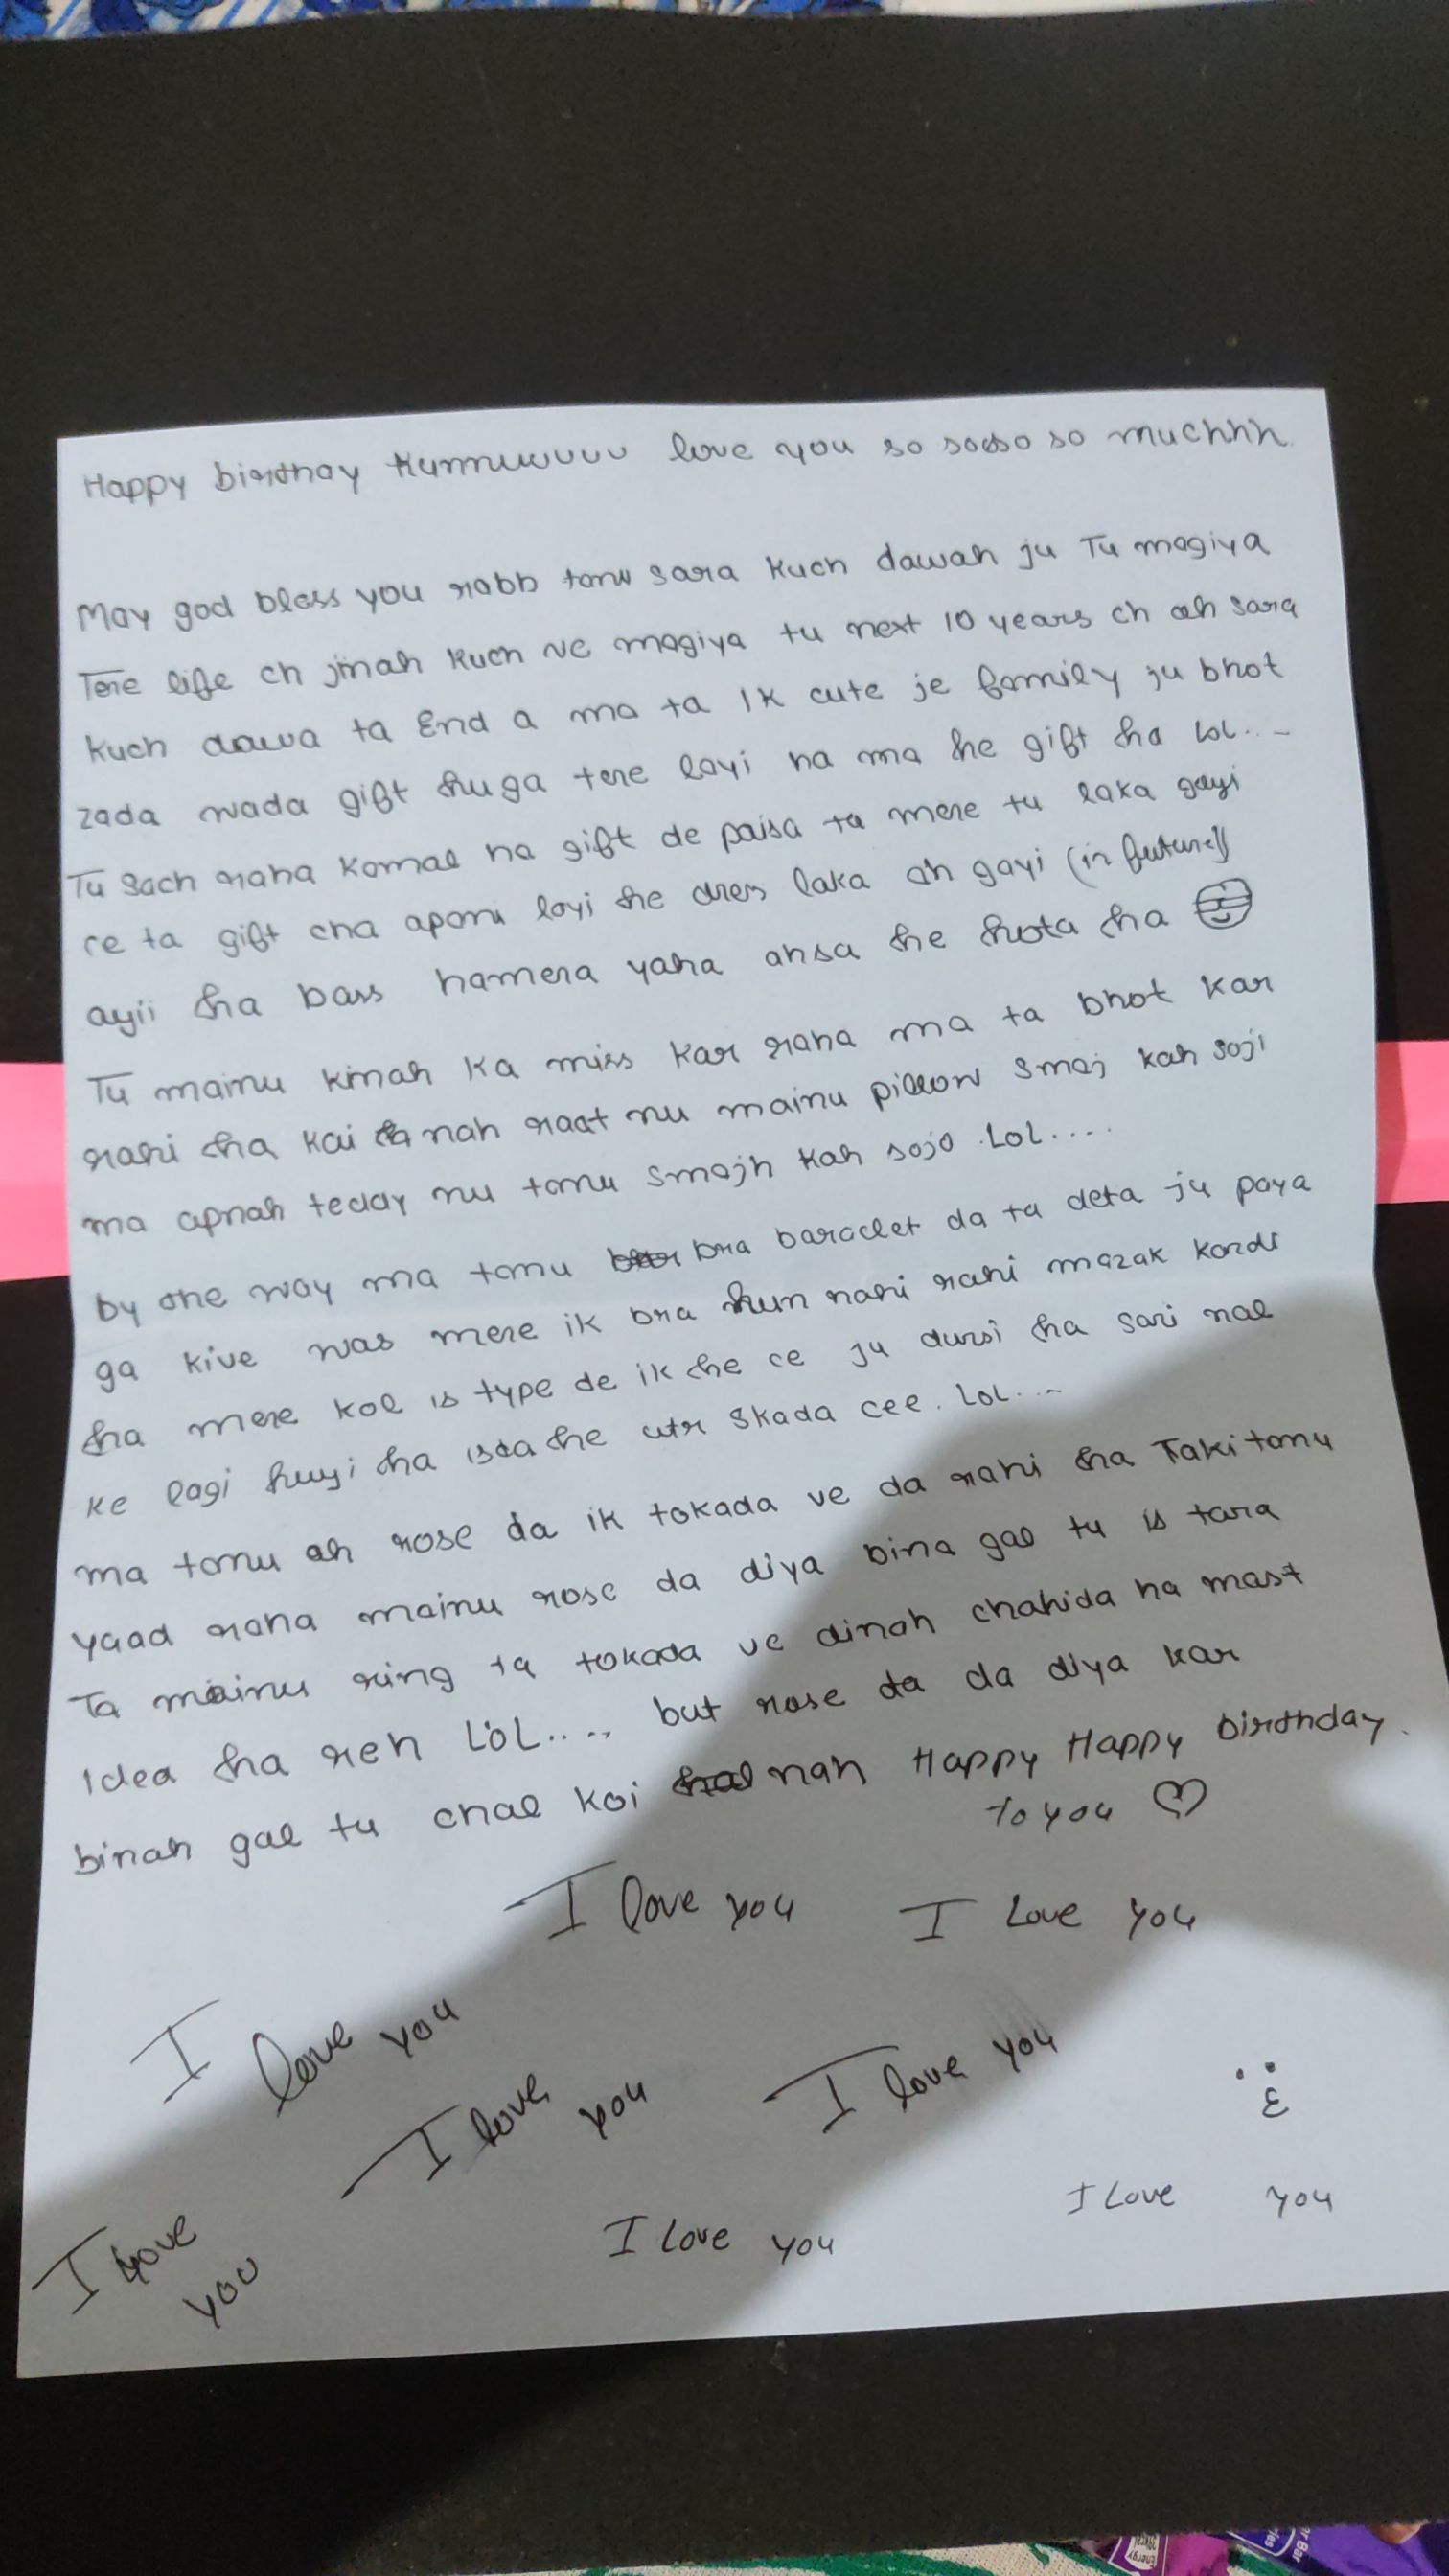 Happy birthay Kunnuwuuu love you so soso so muchhh
May god bless you rabb tonu sara kuch dawah ju Tu magiya
Tere life ch jinah kuch ve magiya tu next 10 years ch ah sara
kuch dawa ta End a ma ta Ik cute je family ju bhot
zada wada gift huga tere layi na ma he gift ha LoL....
Tu Sach raha Komal na gift de paisa ta mere tu laka gayi
ce ta gift cha aponi layi he dres laka ah gayi (in future)
ayii ha bass hamera yaha ahsa he hota ha
Tu mainu kinah ka miss kar raha ma ta bhot kar
rahi ha kai nah raat nu mainu pillow smaj kah soji
ma apnah teday nu tonu smajh kah sojo LoL.....
by the way ma tonu bra baraclet da ta deta ju paya
ga kive was mere ik bra hun nahi rahi mazak kardi
ha mere kol is type de ik he ce ju dursi ha sari nal
ke lagi huyi ha isda he utr skada cee. LoL....
ma tonu ah rose da ik tokada ve da rahi ha Taki tonu
yaad raha mainu rose da diya bina gal tu is tara
Ta mainu ring ta tokada ve dinah chahida na mast
Idea ha reh LOL..... but rose da da diya kar
binah gal tu chal koi nah Happy Happy birthday.
to you
I love you I Love you
I love you
I love you I love you
I Love you
I love you
I Love you